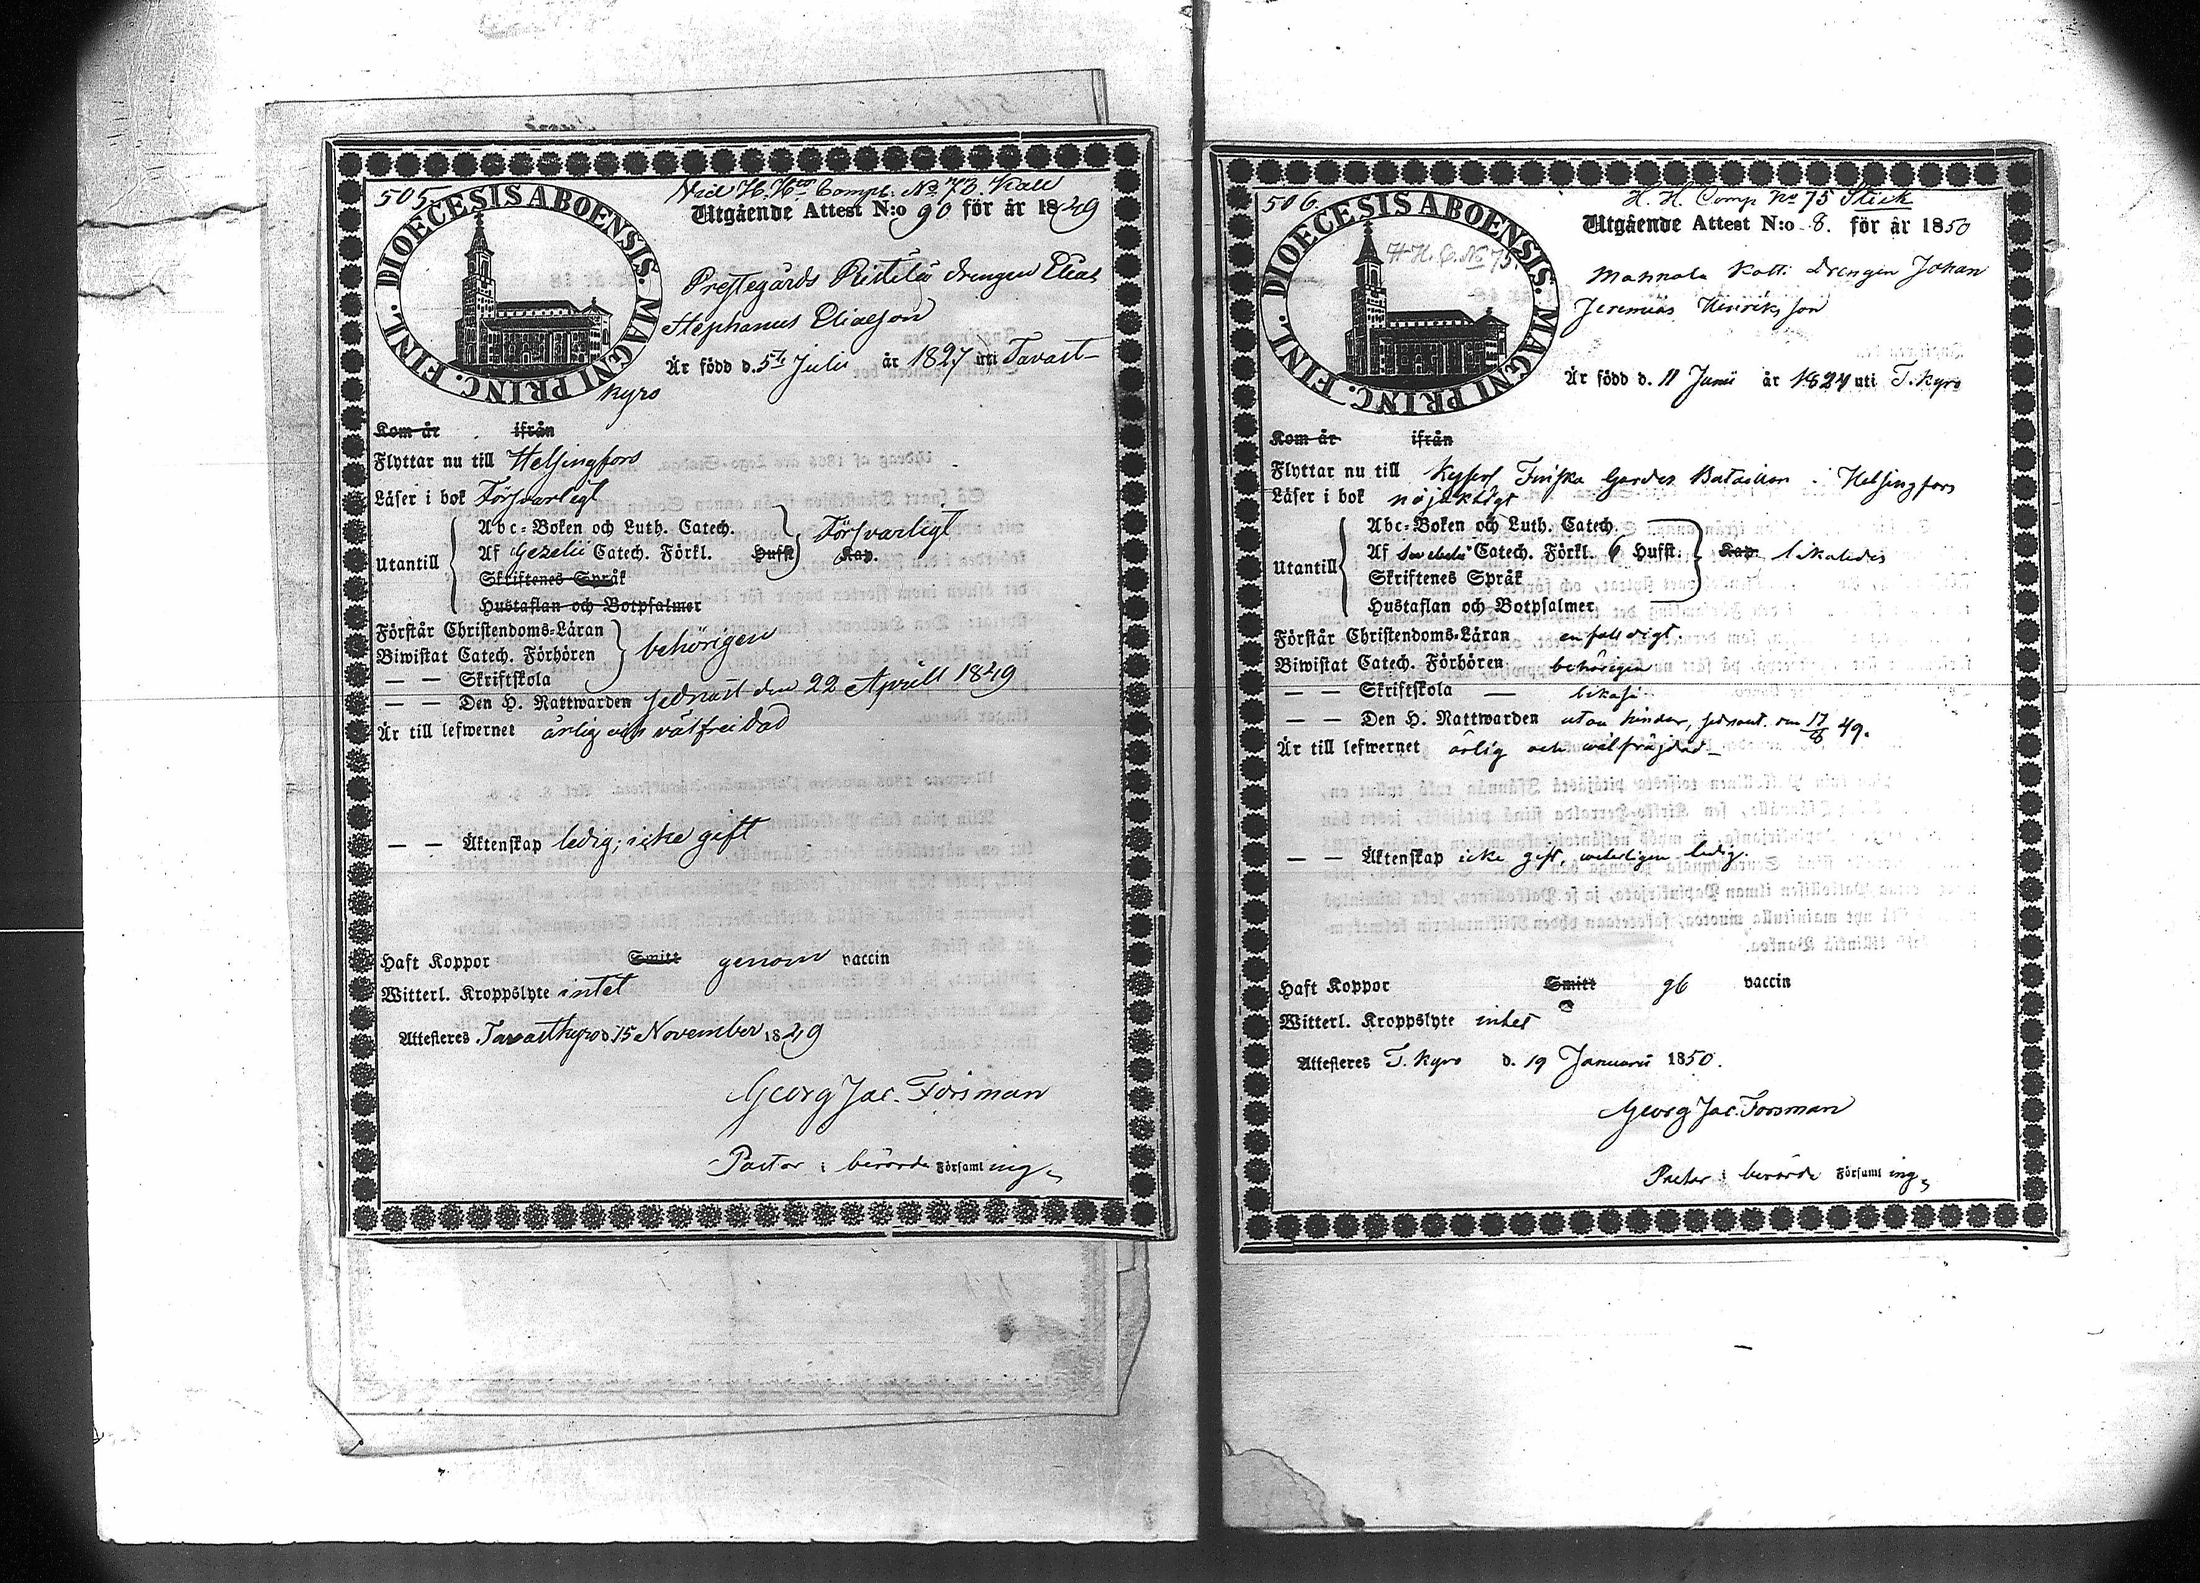 505.
Vid H. H:s Comp. No 73. Kall
Utgående Attest N:o 90 för år 1849
DIOECESIS ABOENSIS. MAGNI PRINC. FINL.
Prestegårds Ristilä drengen Elias
Stephanus Eliasson
Är född d. 5te Julii år 1827 uti Tavast-
kyro
Kom år ifrån
Flyttar nu till Helsingfors
Läser i bok Försvarligt
Utantill
Abc-Boken och Luth. Catech.
Af Gezelii Catech. Förkl. Hufst. Kap. Försvarligt
Skriftenes Språk
Hustaflan och Botpsalmer
Förstår Christendoms-Läran
Biwistat Catech. Förhören behörigen
— — Skriftskola
— — Den H. Nattwarden sednast den 22 Aprill 1849
Är till lefwernet ärlig och välfreidad
— — Äktenskap ledig, icke gift
Haft Koppor Smitt genom vaccin
Witterl. Kroppslyte intet
Attesteras Tavastkyro d. 15 November 1849
Georg Jac. Forsman
Pastor i berörde Församling
506.
H. H. Comp No 75 Stick
Utgående Attest N:o 8. för år 1850
DIOECESIS ABOENSIS. MAGNI PRINC. FINL.
H. H. C. No 75.
Mannala Kotti Drengen Johan
Jeremias Henriksson
Är född d. 11 Junii år 1824 uti T.kyro
Kom år ifrån
Flyttar nu till Kejserl Finska Gardes Bataillon i Helsingfors
Läser i bok nöjaktigt
Utantill
Abc-Boken och Luth. Catech.
Af Svebelii Catech. Förkl. 6 Hufst. Kap. likaledes
Skriftenes Språk
Hustaflan och Botpsalmer
Förstår Christendoms-Läran enfalldigt
Biwistat Catech. Förhören behörigen
— — Skriftskola — likaså
— — Den H. Nattwarden utan hinder, sednast den 17/6 49.
Är till lefwernet ärlig och wälfräjdad
— — Äktenskap icke gift, weterligen ledig.
Haft Koppor Smitt gb vaccin
Witterl. Kroppslyte intet
Attesteras T.kyro d. 19 Januarii 1850.
Georg Jac. Forsman
Pastor i berörde Församling